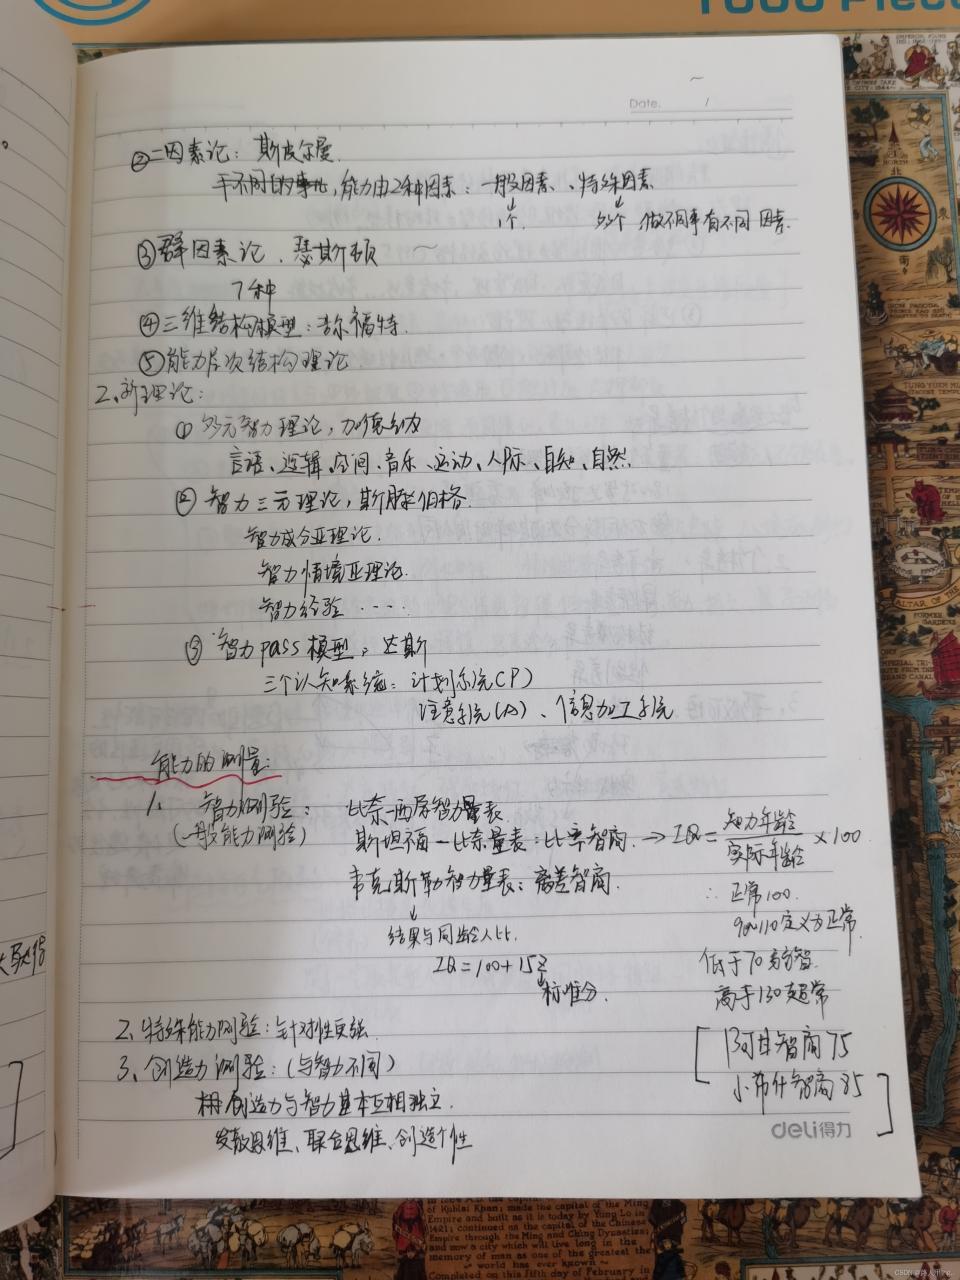 1000 Piece
Date. /
②二因素论：斯皮尔曼.
干不同的事儿,能力由2种因素：一般因素、特殊因素
1个. 多个 做不同事有不同因素.
③群因素论、瑟斯顿
7种
④三维结构模型：吉尔福特.
⑤能力层次结构理论.
2.新理论：
① 多元智力理论，加德纳
言语、逻辑、空间、音乐、运动、人际、自知、自然.
② 智力三元理论，斯腾伯格.
智力成分亚理论.
智力情境亚理论.
智力经验 ‥‥
③ 智力pass模型：达斯
三个认知系统：计划系统(P)
注意系统(A)、信息加工系统
能力的测量:
1. 智力测验：比奈-西蒙智力量表
(一般能力测验) 斯坦福-比奈量表：比率智商. → IQ=智力年龄/实际年龄×100
韦克斯勒智力量表：离差智商. ∴正常100.
结果与同龄人比. 90~110定义为正常.
IQ=100+15Z 低于70弱智.
标准分. 高于130超常
2.特殊能力测验：针对性更强
[阿甘智商75
3、创造力测验：(与智力不同)
小布什智商85]
创造力与智力基本互相独立.
deli得力
发散思维、聚合思维、创造个性
of Kublai Khan; made the capital of the Ming
Empire and built as it is today by Yung Lo in
1421; continued as the capital of the Chinese
Empire through the Ming and Ching Dynasties;
and now a city which will live long in the
memory of man as one of the greatest the
world has ever known
Completed on this fifth day of February in